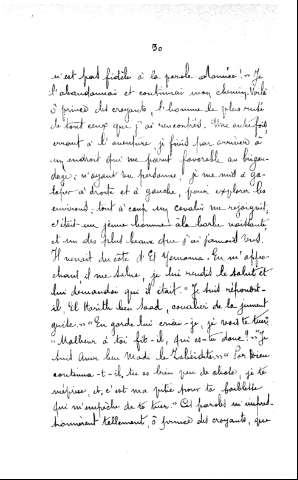 30
n'est pas fidèle à la parole donnée! » Je
l'abandonnai et continuai mon chemin. Voilà
ô prince des croyants, l'homme le plus rusé
de tout ceux que j'ai rencontrés. Une autre fois
errant à l'aventure, je finis par arriver à
un endroit qui me parut favorable au brigan-
dage; n'ayant vu personne, je me mis à ga-
loper à droite et à gauche, pour explorer les
environs; tout à coup un cavalier me rejoignit,
c'était un jeune homme à la barbe naissante
et un des plus beaux que j'ai jamais vus.
Il venait du côté d'El Yemama. En m'appro-
chant, il me salue, je lui rendis le salut et
lui demandai qui il était. « Je suis répondit-
il, El Harith ben Saad, cavalier de la jument
grise. » « En garde lui criai-je, je vais te tuer »
« Malheur à toi fit-il, qui es-tu donc! » « Je
suis Amr ben Madi le Zobéidite » « Par Dieu
continua-t-il, tu es bien peu de chose, je te
méprise, et, c'est ma pitié pour ta faiblesse
qui m'empêche de te tuer. » Ces paroles m'impres-
sionnèrent tellement, ô prince des croyants, que